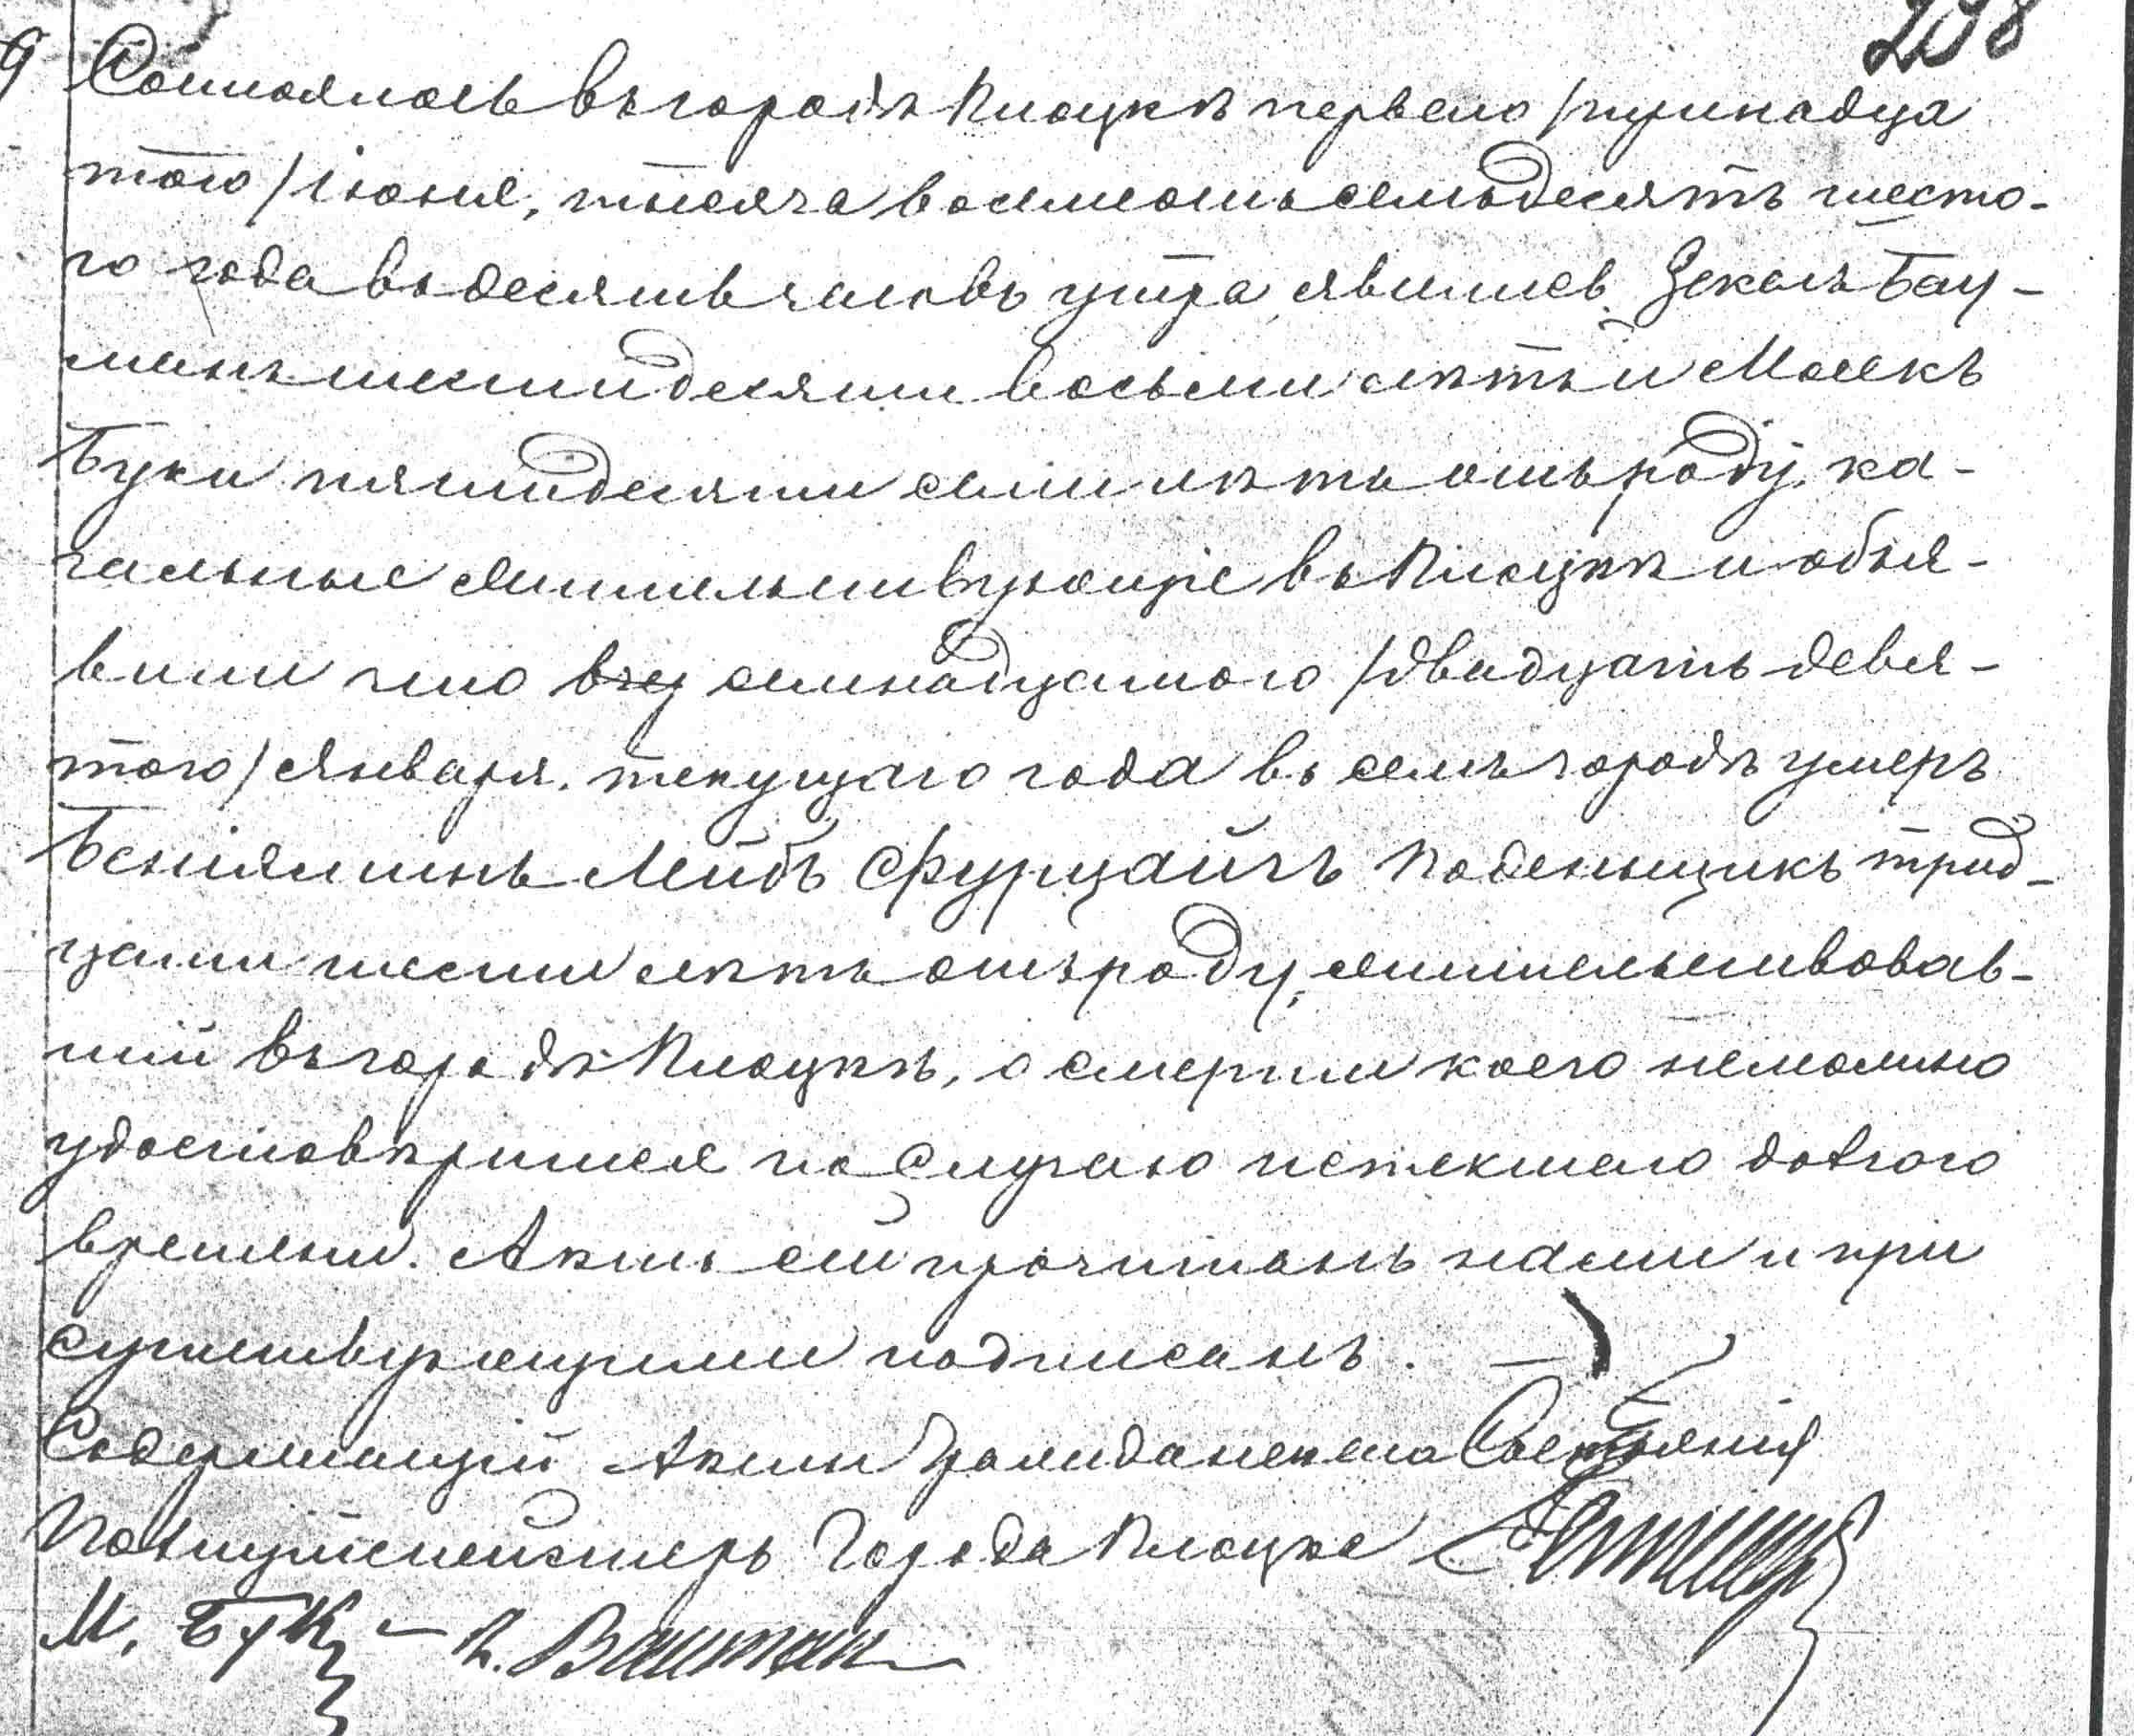 298
9 Состоялось въ городѣ Плоцкѣ перваго /тринадца
таго/ Іюня, тысяча восемьсотъ семьдесятъ шесто-
го года въ десять часовъ утра, явились Бау-
манъ шестидесяти восьми лѣтъ и Мошекъ
Буки пятидесяти семи лѣтъ отъ роду, ка-
гальные жительствующіе въ Плоцкѣ и объя-
вили что семнадцатого /двадцать девя-
таго/ Января текущаго года въ семъ городѣ умеръ
Беніяминъ Лейбъ Фурцайгъ поденьщикъ трид-
цати шести лѣтъ отъ роду, жительствовав-
шій въ городѣ Плоцкѣ, о смерти коего неможно
удостовѣрится по случаю истекшаго долгого
времени. Актъ сей прочитанъ нами и при
сутствующими подписанъ.
Содержащій Акты Гражданскаго Состоянія
Полицiймейстеръ Города Плоцка
М. Бук